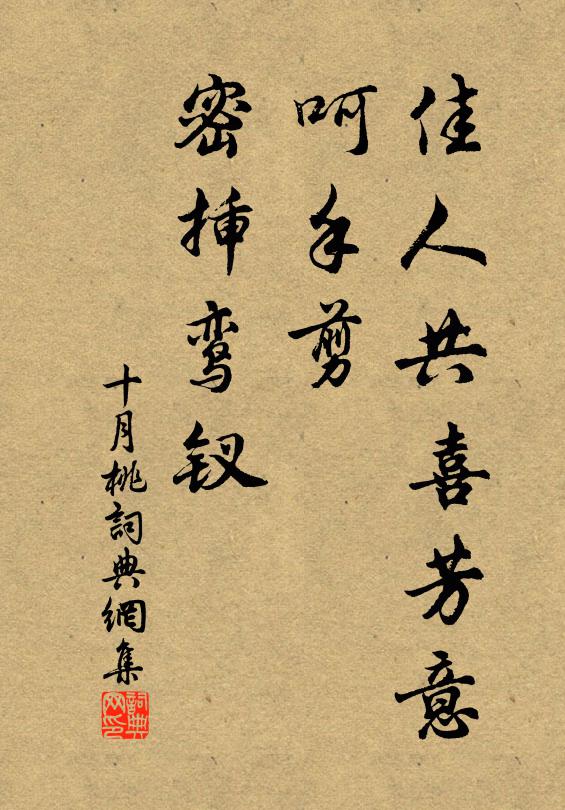 佳人共喜芳意
呵手剪
密插鸾钗
十月桃詞典網集
詞典
网印